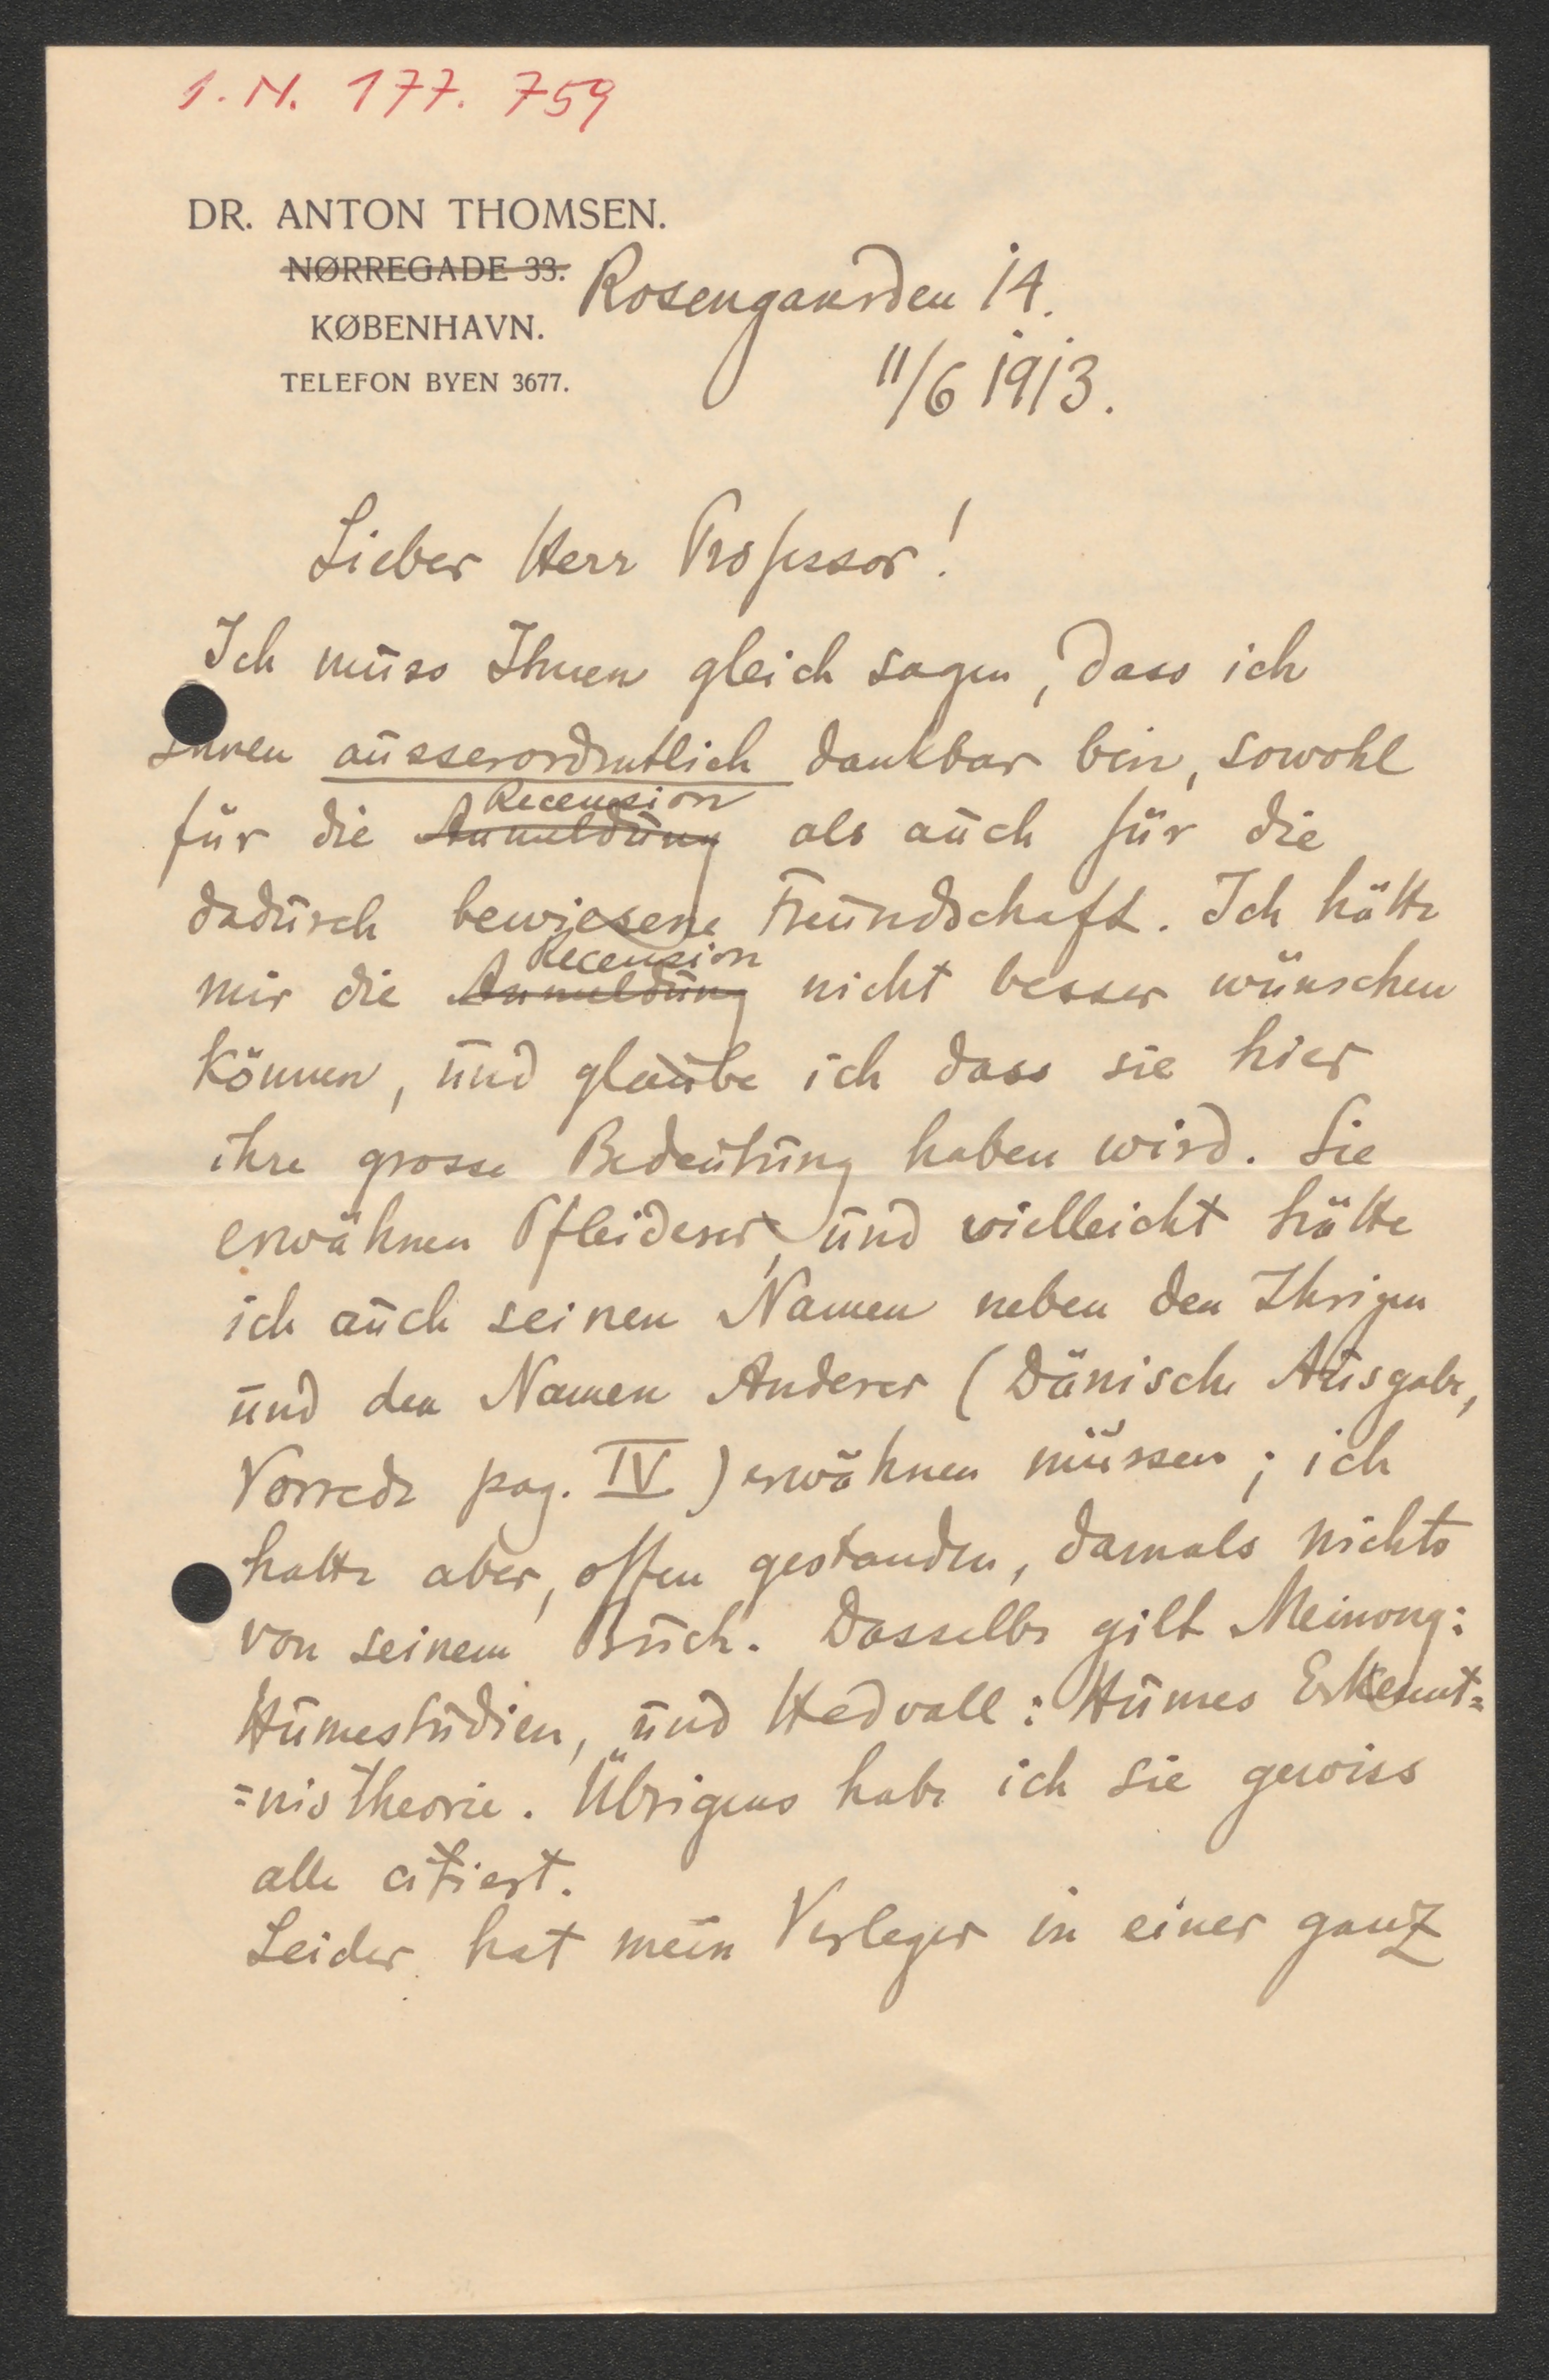 I. N. 177. 759
DR. ANTON THOMSEN.
NØRREGADE 33.
Rosengaarden 14.
KØBENHAVN.
11/6 1913.
TELEFON BYEN 3677.
Lieber Herr Professor!
Ich muss Ihnen gleich sagen, dass ich
Ihnen ausserordentlich dankbar bin, sowohl
Recension
für die Anmeldung als auch für die
dadurch bewiesene Freundschaft. Ich hätte
Recension
mir die Anmeldung nicht besser wünschen
können, und glaube ich dass sie hier
ihre grosse Bedeutung haben wird. Sie
erwähnen Pfleiderer, und vielleicht hätte
ich auch seinen Namen neben den Ihrigen
und den Namen Anderer (Dänische Ausgabe,
Vorrede pag. IV) erwähnen müssen; ich
hatte aber, offen gestanden, damals nichts
von seinem Buch. Dasselbe gilt Meinong:
Humestudien, und Hedvall: Humes Erkennt=
=nistheorie. Übrigens habe ich sie gewiss
alle citiert.
Leider hat mein Verleger in einer ganz